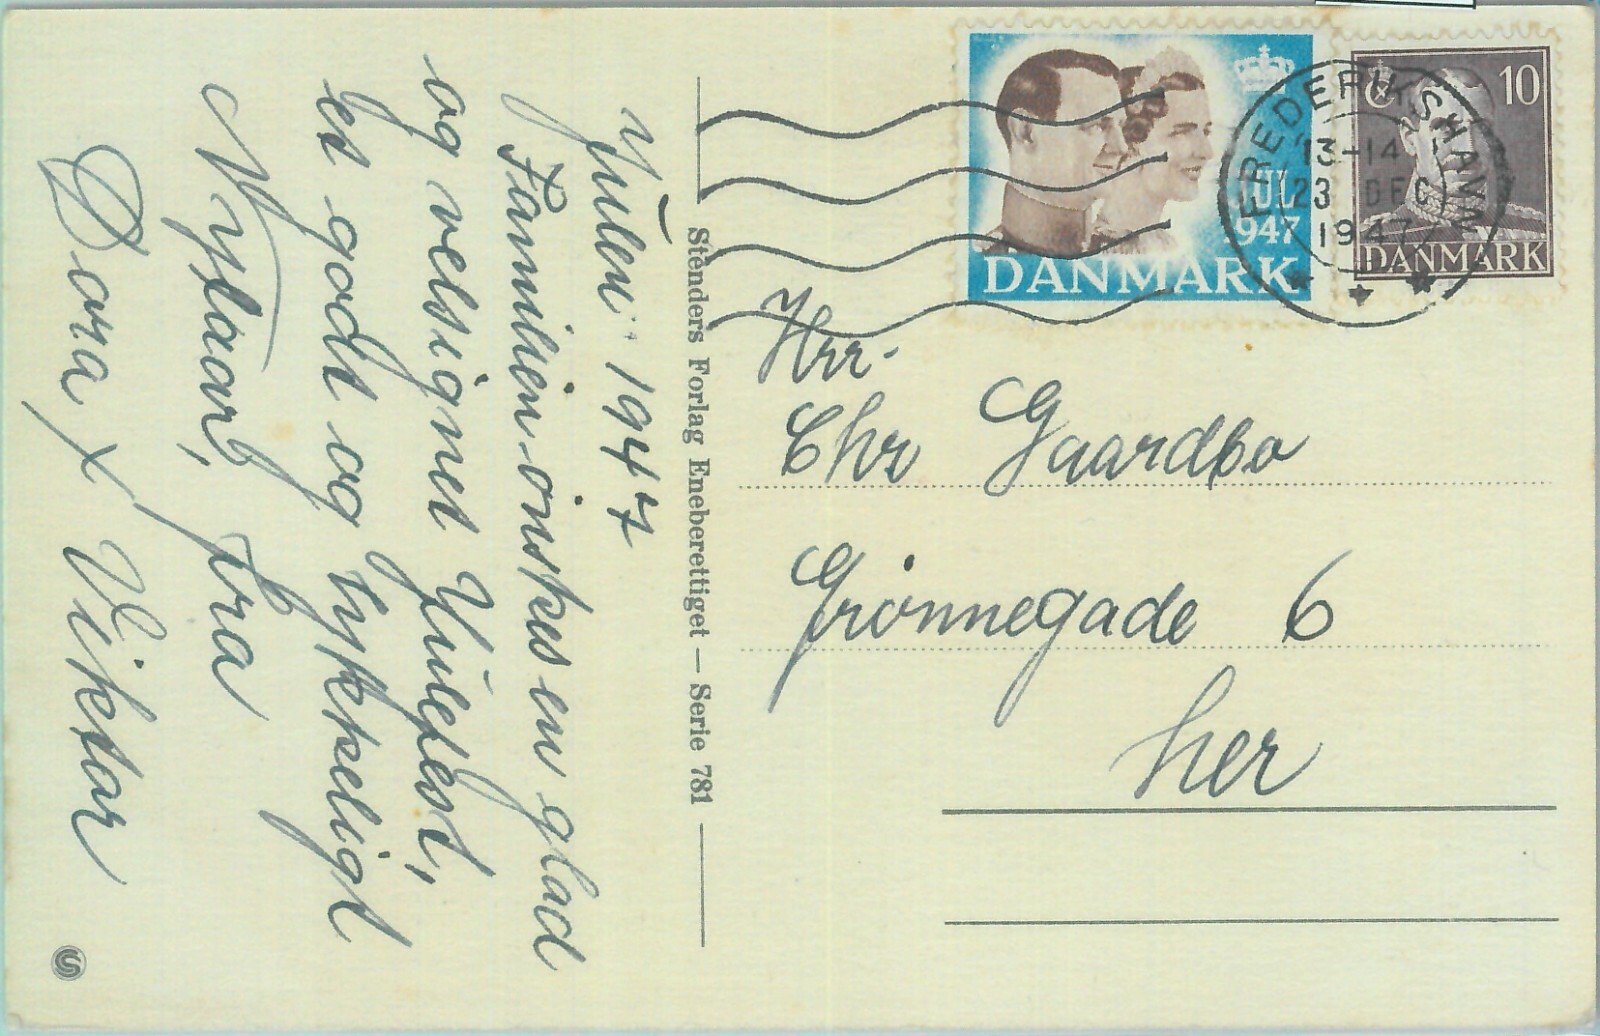 Julen 1947
Familien önskes en glad
og velsignet Julefest,
et godt og lykkeligt
Nytaar, fra
Dora x Viktor
Stenders Forlag Eneberettiget — Serie 781
JUL
1947
DANMARK
10
DANMARK
FREDERIKSHAVN
13-14
23 DEC
1947
Hrr.
Chr Gaardbo
Grönnegade 6
her